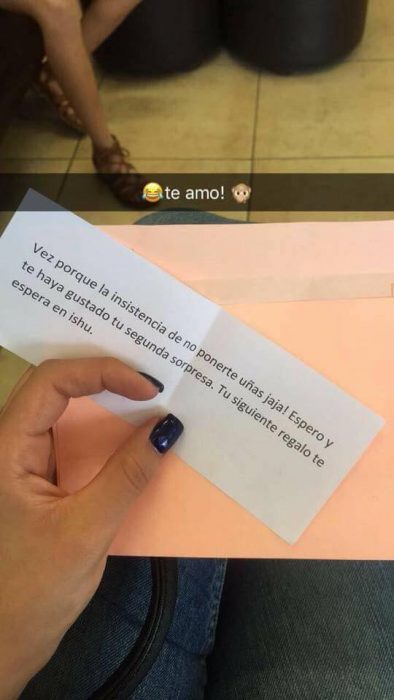 😂te amo! 🙊
Vez porque la insistencia de no ponerte uñas jaja! Espero y
te haya gustado tu segunda sorpresa. Tu siguiente regalo te
espera en ishu.